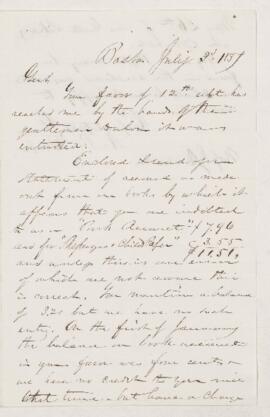 Boston July 2d 1857
Gent
Your favor of 12th ult. has
reached me by the hands of the
gentleman to whom it was
entrusted.
Enclosed I send you
statement of account made
out from our books by which it
appears that you are indebted
to us on "Book Account" 7.96
and for 3.55
$11.51
and unless there is an error
of which we are not aware this
is correct. You mention a balance
of 3.21 but we have no such
entry. On the first of January
the balance on book account
in your favor was four cents &
we have no credit to you since
that time - but have a charge